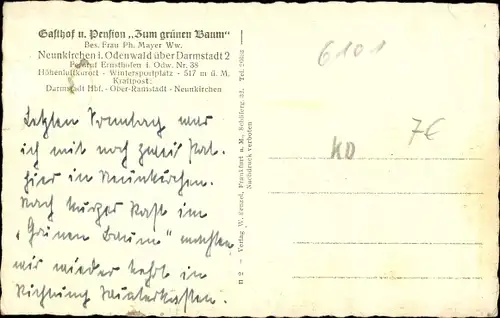 Gasthof u. Pension „Zum grünen Baum"
Bes. Frau Ph. Mayer Ww.
Neunkirchen i. Odenwald über Darmstadt 2
Fernruf Ernsthofen i. Odw. Nr. 38
Höhenluftkurort - Wintersportplatz - 517 m ü. M.
Kraftpost:
Darmstadt Hbf. - Ober-Ramstadt - Neunkirchen
Letzten Sonntag war
ich mit noch zwei
hier in Neunkirchen.
Nach kurzer Rast im
„Grünen Baum" machten
wir wieder kehrt in
Richtung Winterkasten.
II 2 - Verlag W. Frankfurt a. M.,
Nachdruck verboten
6101
KO
7€